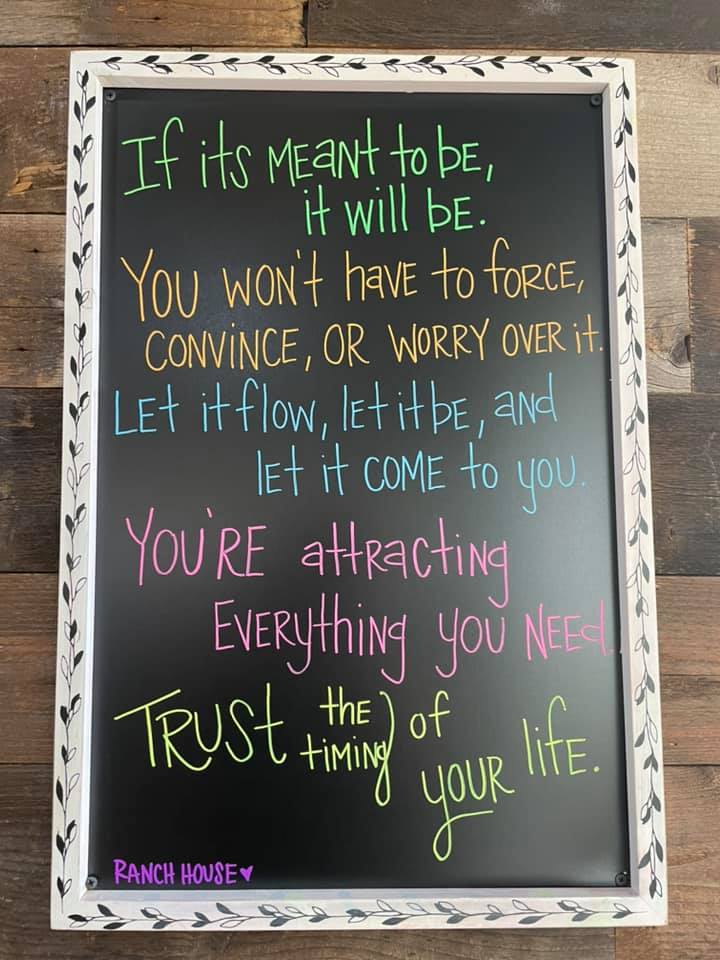 If its MEANT to bE,
it will bE.
YOU WON't havE to fORCE,
CONViNCE, OR WORRY OVER it.
LEt it flow, lEt it bE, aNd
lEt it COME to you.
YOU'RE attRacting
EVERYthiNg you NEEd.
TRUSt thE timiNg of yOUR lifE.
RANCH HOUSE♥